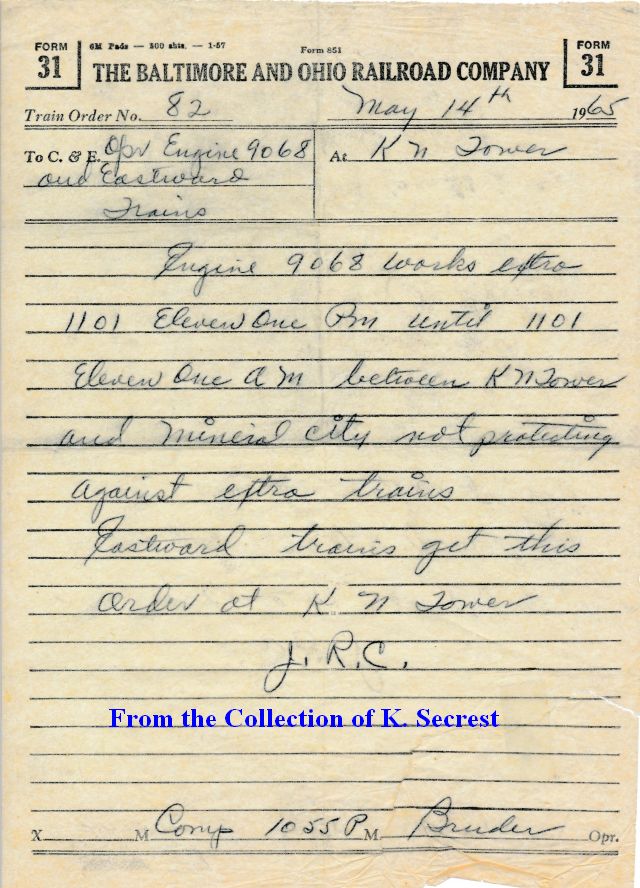 FORM 31
6M Pads — 500 shts. — 1-57
Form 851
FORM 31
THE BALTIMORE AND OHIO RAILROAD COMPANY
Train Order No. 82 May 14th 1965
To C. & E. Opr Engine 9068
and Eastward
Trains
At K N Tower
Engine 9068 works extra
1101 Eleven One Pm until 1101
Eleven One A M between K N Tower
and Mineral City not protecting
against extra trains
Eastward trains get this
Order at K N Tower
J. R. C.
From the Collection of K. Secrest
X M Comp 1055 P M Bruder Opr.